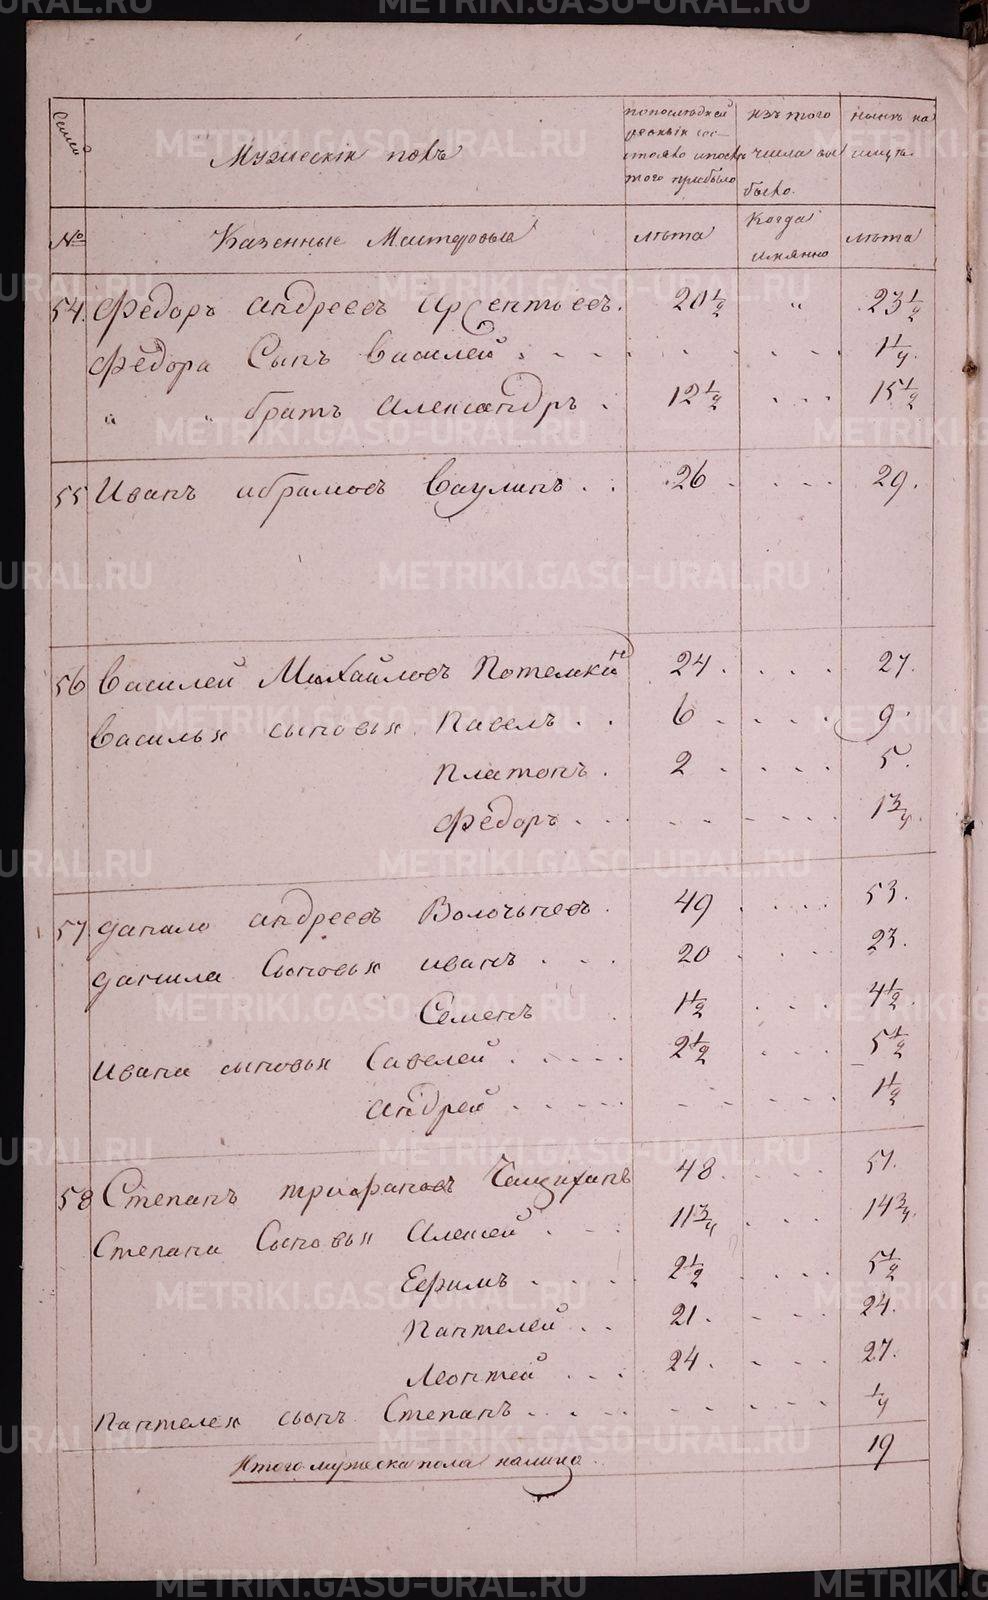 Семьи
Мужескій полъ
по последней ревизіи состояло и после того прибыло
изъ того числа выбыло
ныне на лицо
№
Казенные Мастеровые
лѣта
Когда имянно
лѣта
54. Федоръ Андреевъ Арсентьевъ. 20 1/2 " 23 1/2
Федора Сынъ Василей 1 1/4.
" " братъ Александръ 12 1/2 15 1/2
55 Иванъ Абрамовъ Ваулинъ 26 29.
56 Василей Михайловъ Потемкин 24 27.
Василья сыновья Павелъ 6 9.
Платонъ. 2 5.
Федоръ 1 3/4.
57. Данило Андреевъ Волочьневъ. 49 53.
Данила Сыновья иванъ 20 23.
Семенъ 1 1/2 4 1/2.
Ивана сыновья Савелей 2 1/2 5 1/2
Андрей 1 1/2
58 Степанъ трифановъ 48 51.
Степана Сыновья Алексей 11 3/4 14 3/4.
Ефимъ 2 1/2 5 1/2
Пантелей 21. 24.
Леонтей 24. 27.
Пантелея сынъ Степанъ 1/4
Итого мужеска пола налицо 19
METRIKI.GASO-URAL.RU